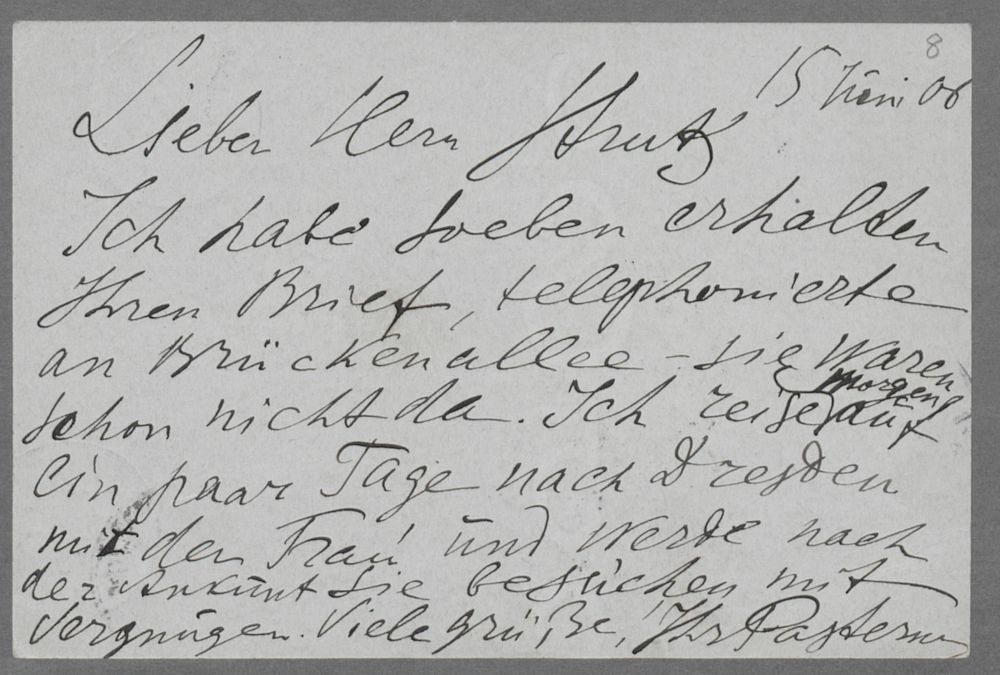 8
15 Juni 06
Lieber Herr Struck
Ich habe soeben erhalten
Ihren Brief, telephonierte
an Brückenallee – sie waren
schon nicht da. Ich reise morgens auf
ein paar Tage nach Dresden
mit der Frau und werde nach
der Ankunt sie besuchen mit
Vergnügen. Viele grüße, Ihr Pasternak